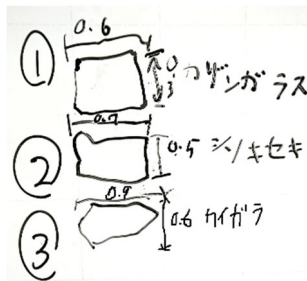 0.6
① 0.3 カザンガラス
0.7
② 0.5 シノキセキ
0.9
③ 0.6 カイガラ